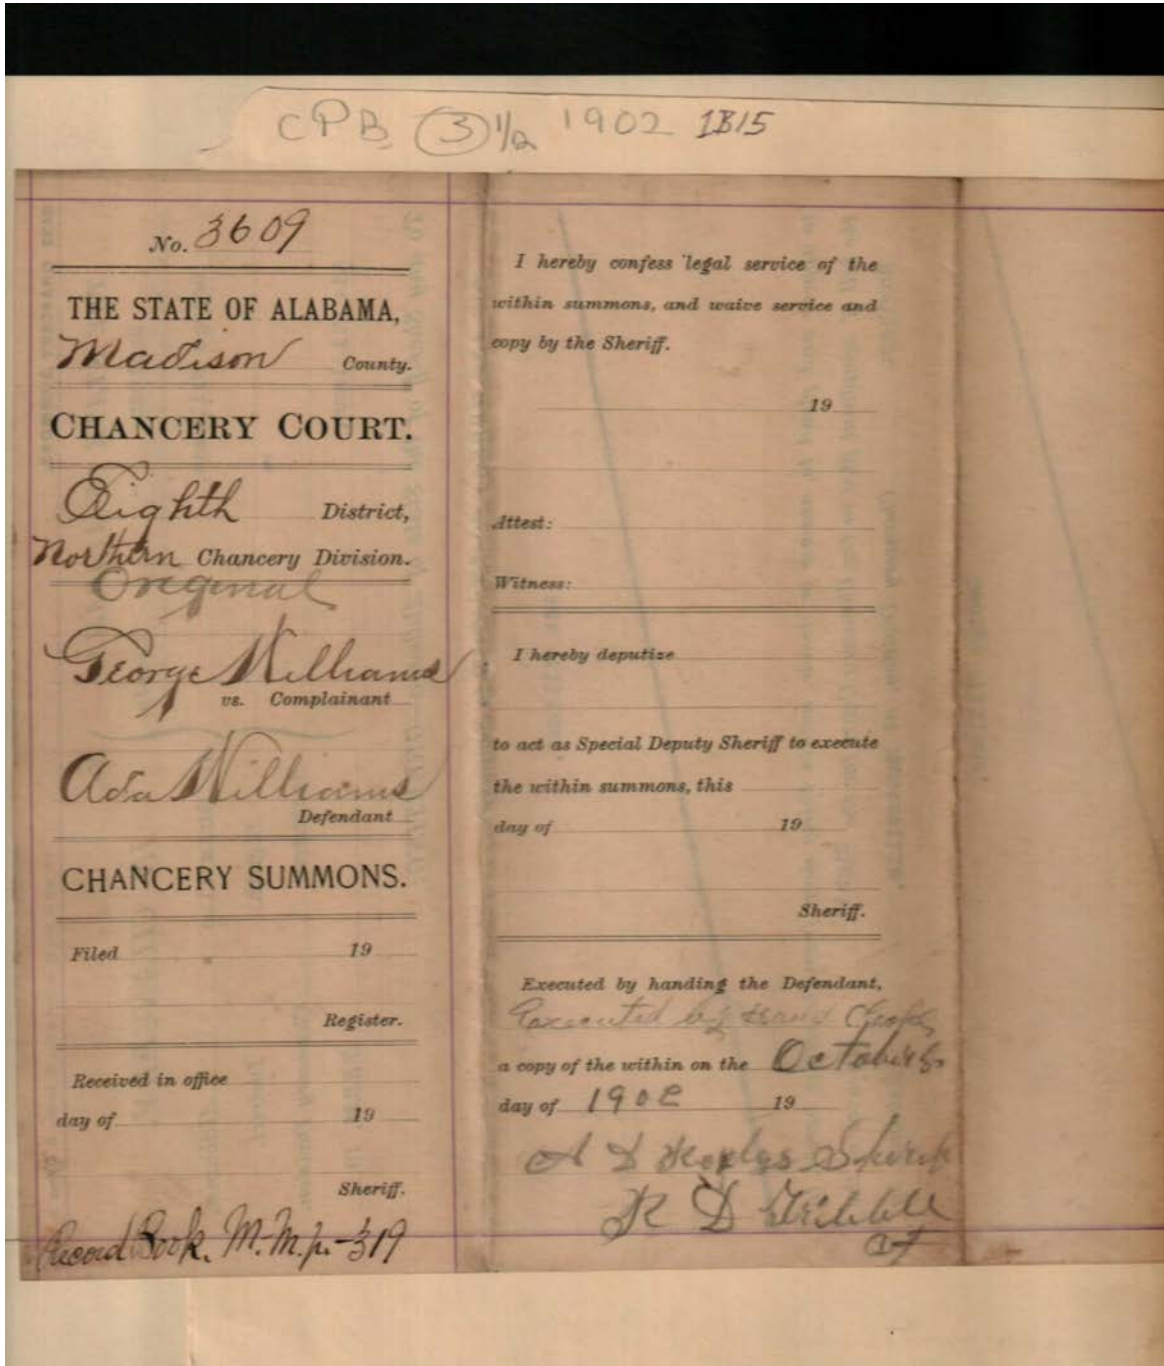 CPB 3 1/2 1902 1B15
No. 3609
THE STATE OF ALABAMA,
Madison County.
CHANCERY COURT.
Eighth District,
Northern Chancery Division.
Original
George Williams
vs. Complainant
Ada Williams
Defendant
CHANCERY SUMMONS.
Filed 19
Register.
Received in office
day of 19
Sheriff.
Record Book. M.M. p. 319
I hereby confess legal service of the
within summons, and waive service and
copy by the Sheriff.
19
Attest:
Witness:
I hereby deputize
to act as Special Deputy Sheriff to execute
the within summons, this
day of 19
Sheriff.
Executed by handing the Defendant,
Executed by
a copy of the within on the October
day of 1902 19
A D Sheriff
R D